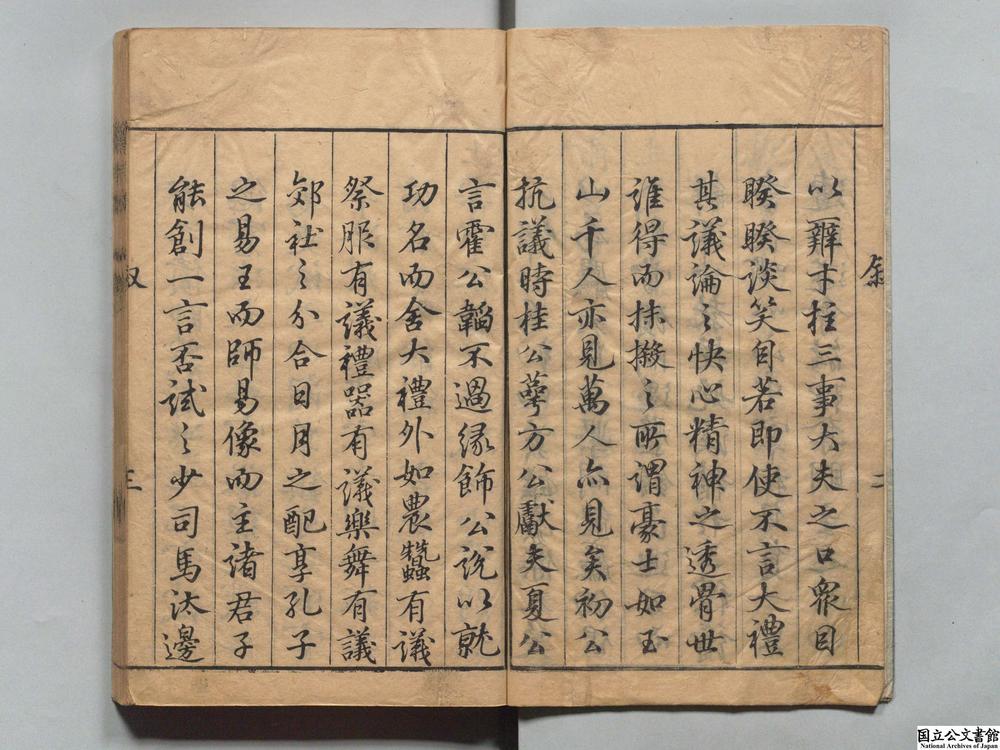 叙
二
以辯才拄三事大夫之口眾目
睽睽談笑自若即使不言大禮
其議論之快心精神之透骨世
誰得而抹摋之所謂豪士如玉
山千人亦見萬人亦見矣初公
抗議時桂公萼方公獻夫夏公
言霍公韜不過緣飾公說以就
功名而舍大禮外如農蠶有議
祭服有議禮器有議樂舞有議
郊社之分合日月之配享孔子
之易王而師易像而主諸君子
能創一言否試之少司馬汰邊
叙
三
国立公文書館
National Archives of Japan